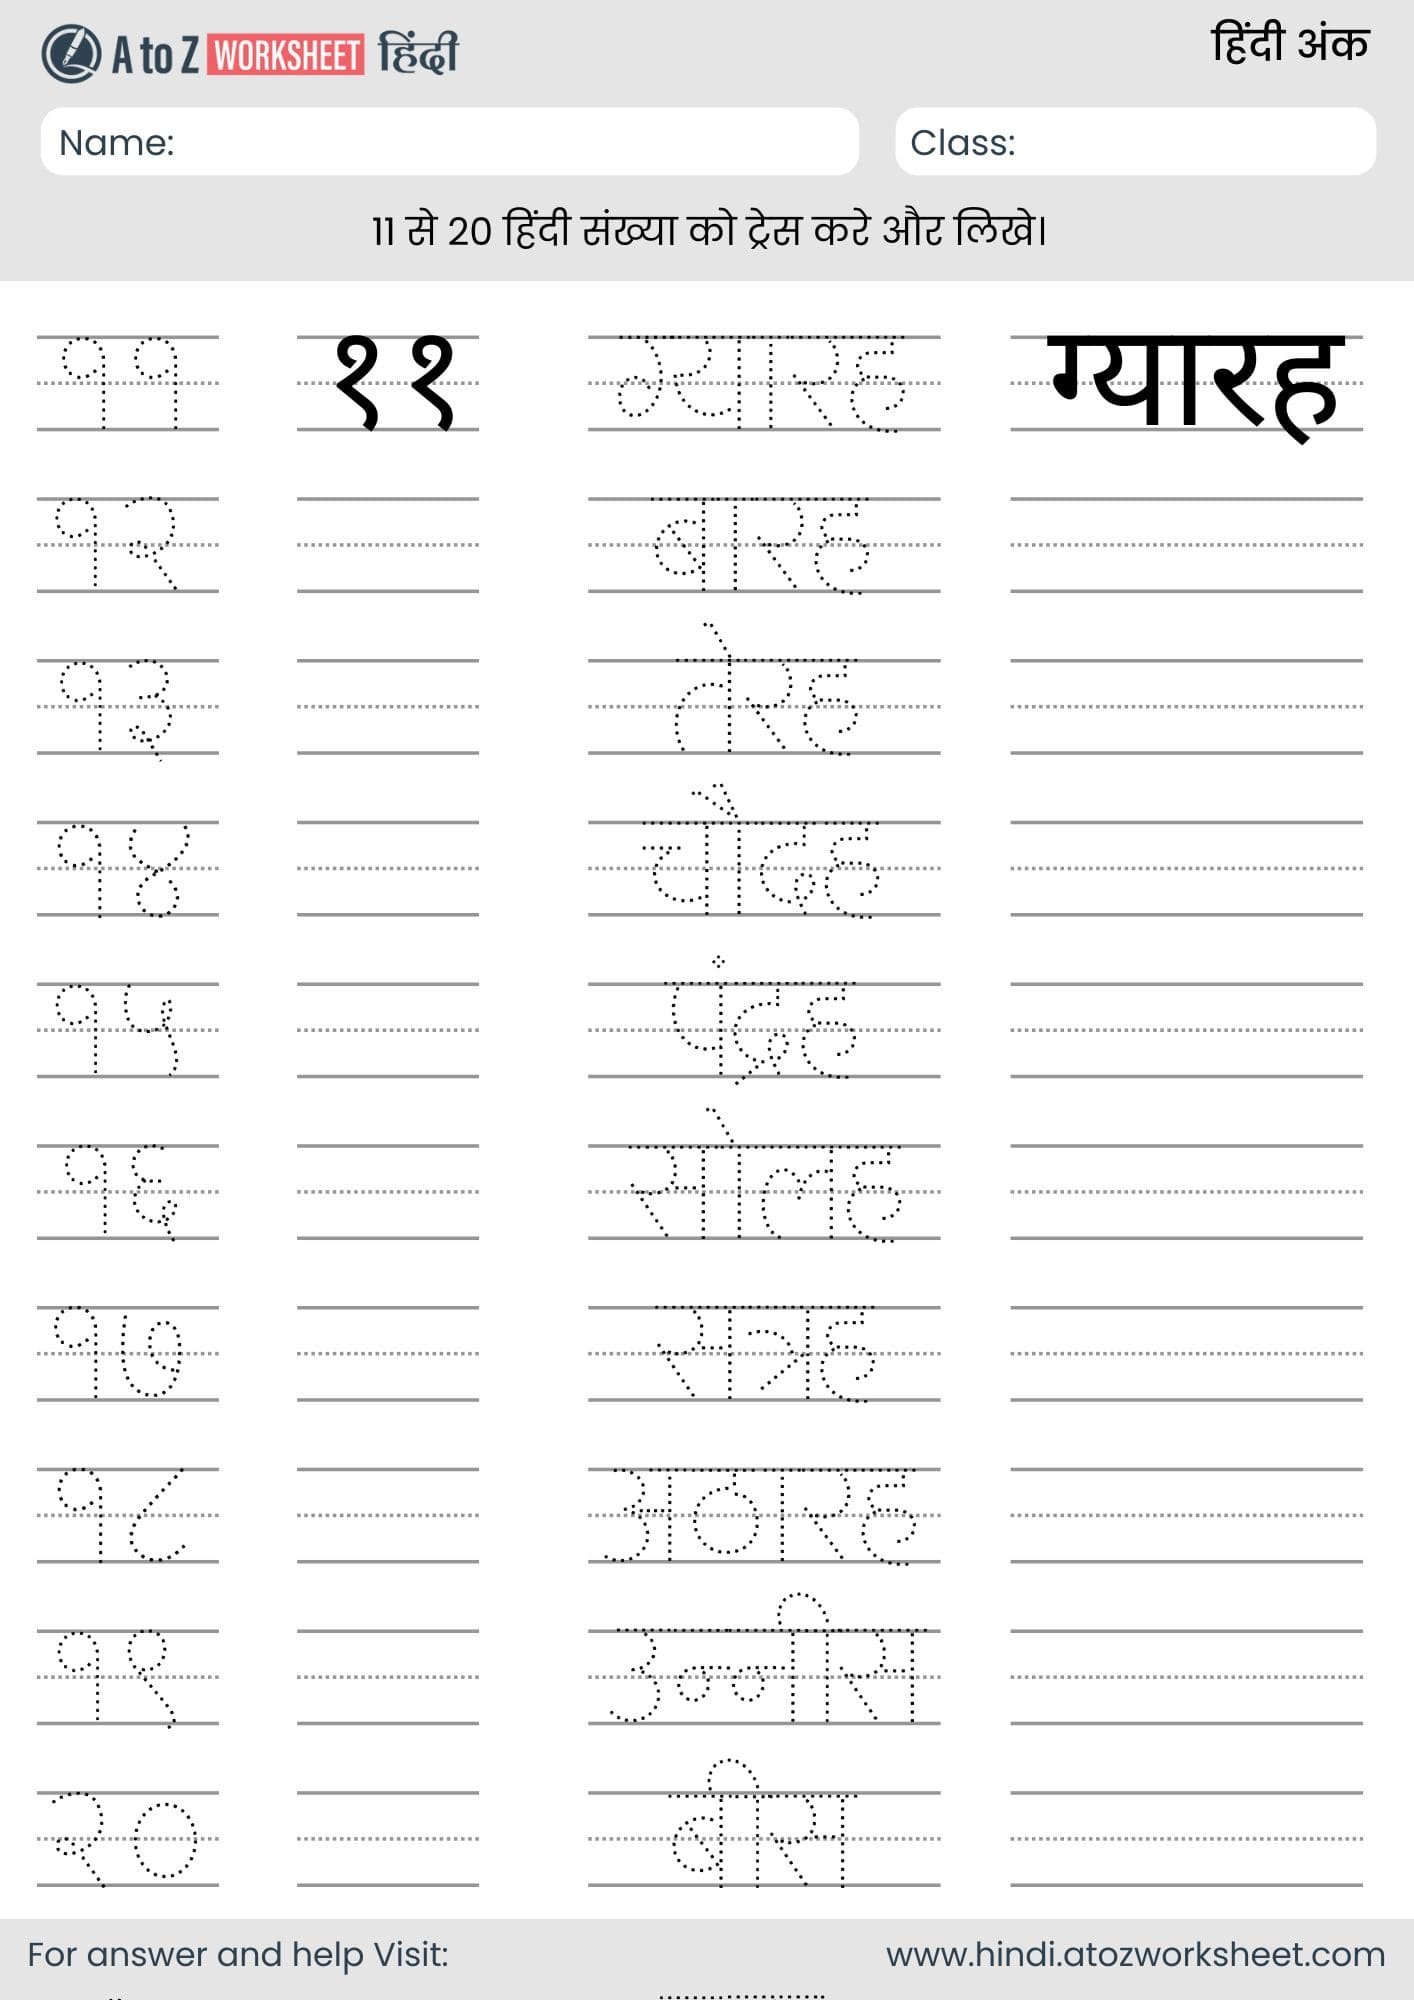 A to Z WORKSHEET हिंदी
हिंदी अंक
Name:
Class:
11 से 20 हिंदी संख्या को ट्रेस करे और लिखे।
११ ११ ग्यारह ग्यारह
१२ बारह
१३ तेरह
१४ चौदह
१५ पंद्रह
१६ सोलह
१७ सत्रह
१८ अठारह
१९ उन्नीस
२० बीस
For answer and help Visit:
www.hindi.atozworksheet.com